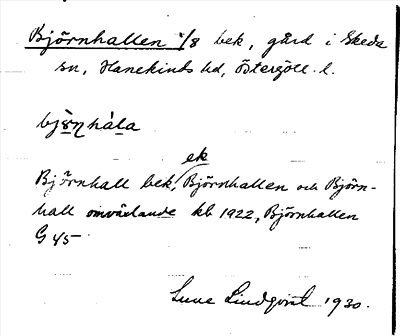 Björnhallen 1/8 bek, gård i Skeda
sn, Hanekinds hd, Östergötl. l.
bjö̱ṉhála
ek
Björnhall bek, Björnhallen och Björn-
hall omväxlande kb 1922, Björnhallen
G 45
Sune Lindqvist 1930.